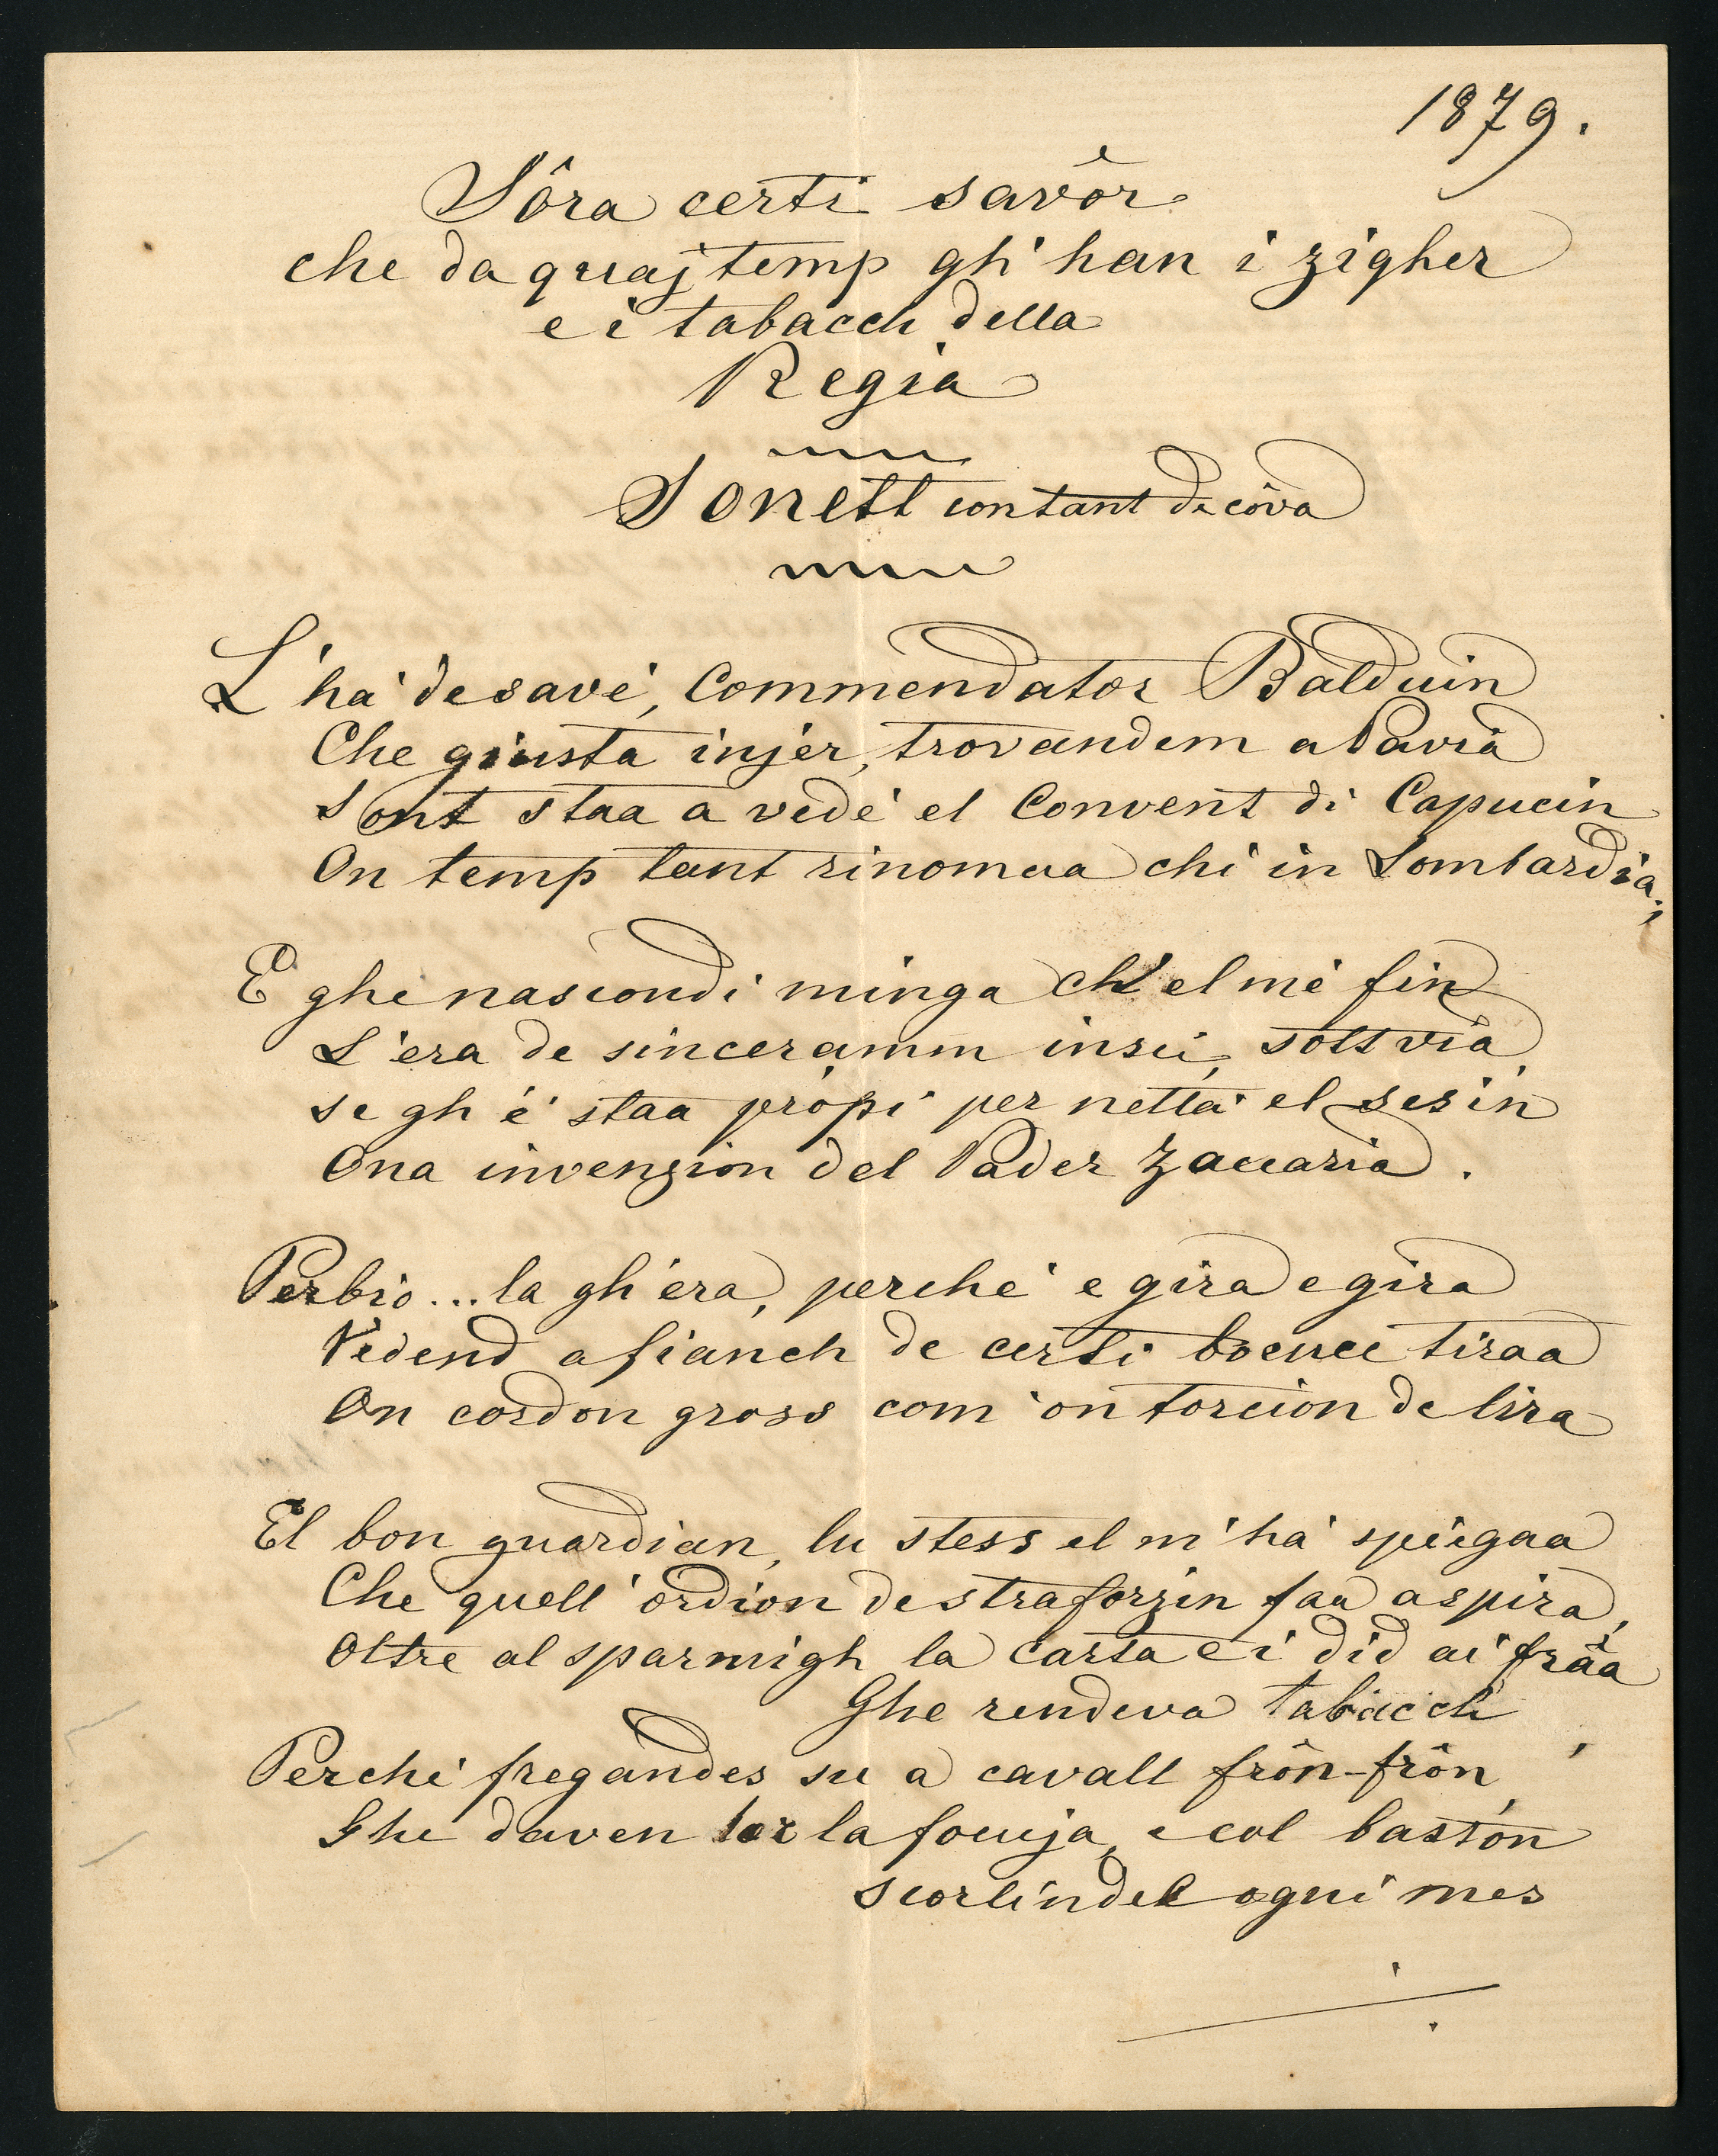 1879.
Sôra certi savôr
che da quaj temp gh' han i zigher
e i tabacch della
Regia
Sonett con tant de cóva
L'ha de savè, Commendator Balduin
Che giusta injer, trovandem a Pavia
Sont staa a vedè el Convent di Capucin
On temp tant rinomaa chì in Lombardia;
E ghe nascondi minga ch' el mè fin
L'era de sinceramm insci, sott via
Se gh'è staa pròpi per nettà el sesin
Ona invenzion del Pader Zaccaria.
Perbio... la gh'era, perchè e gira e gira
Vedend a fianch de certi boeucc tiraa
On cordon gross com'on torcion de lira
El bon guardian, lu stess el m'ha spiegaa
Che quell'ordion de straforzin faa a spira,
Oltre al sparmigh la carta e i did ai fràa
Ghe rendeva tabacch
Perchè fregandes su a cavall frôn-frôn,
Ghe daven la foeuja, e col bastón
Scorlindel ogni mes